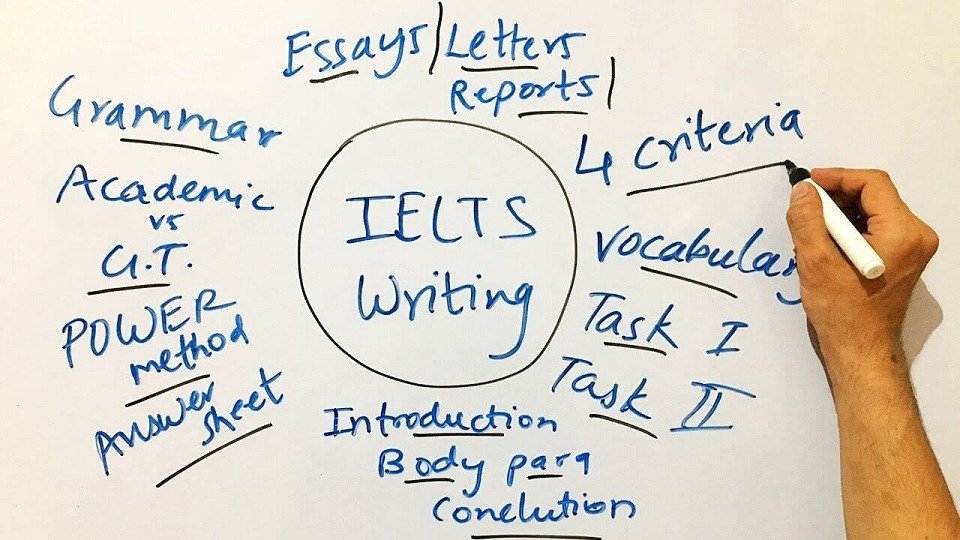 Essays| Letters
Reports|
Grammar
Academic
vs
G.T.
POWER
method
Answer
sheet
IELTS
Writing
4 criteria
Vocabulary
Task I
Task II
Introduction
Body para
Conclution